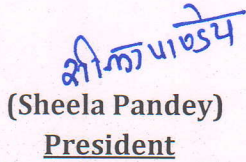 शीला पाण्डेय
(Sheela Pandey)
President